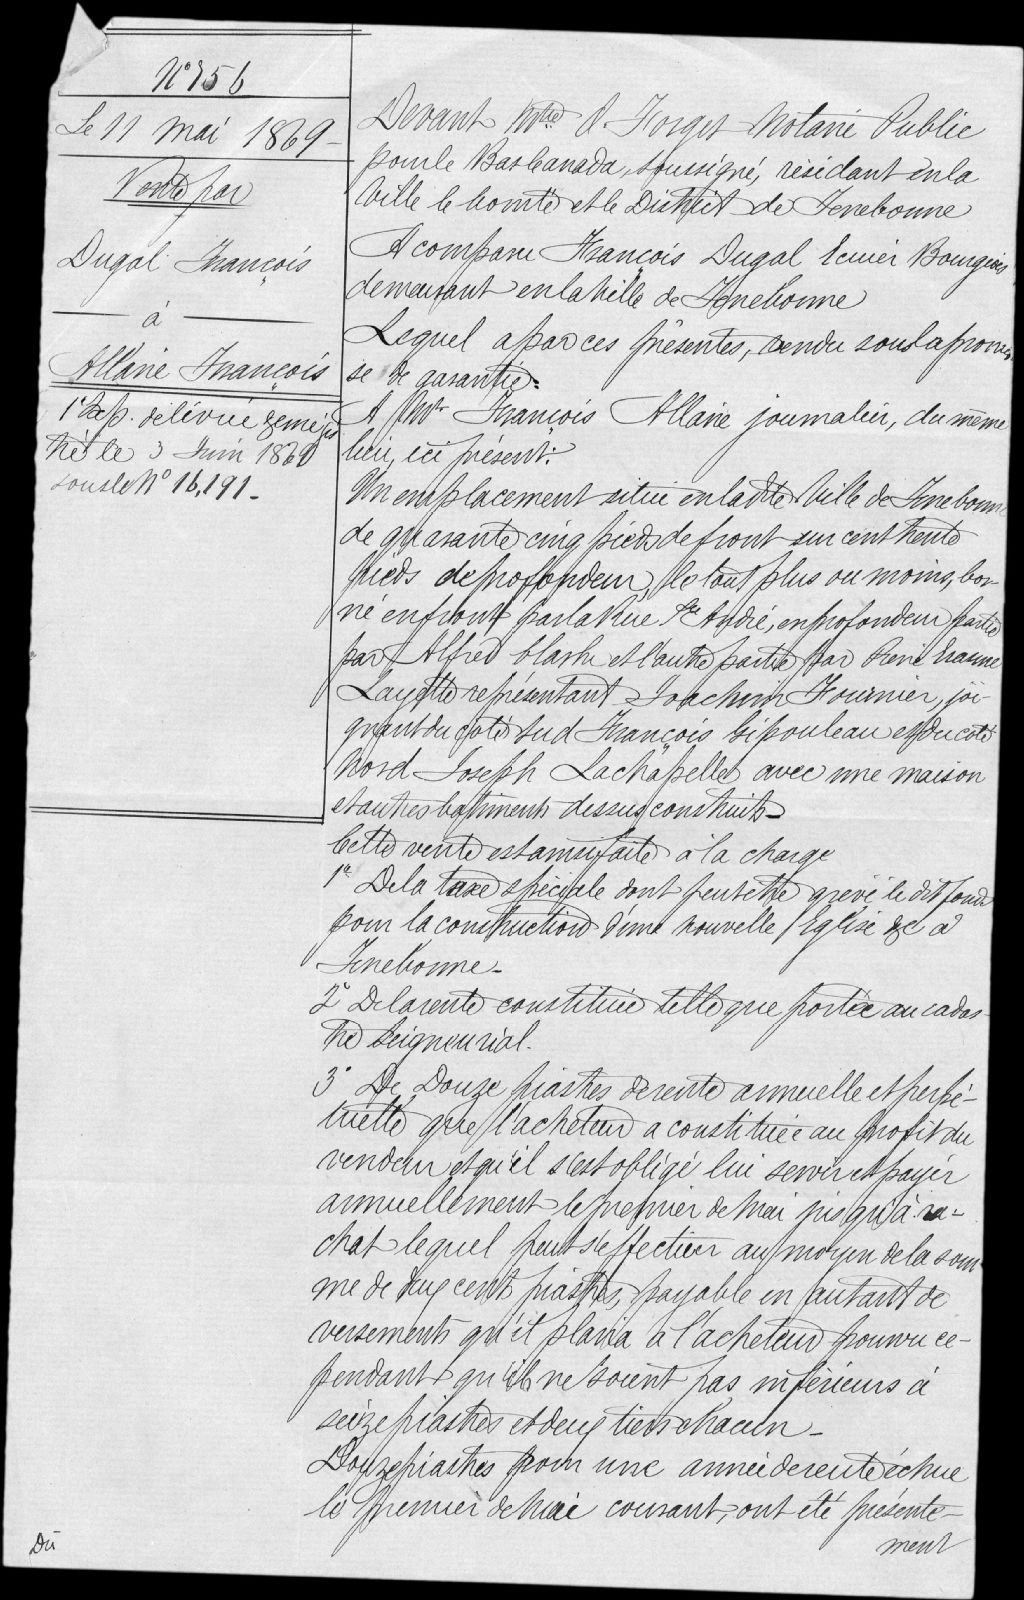 N° 756
Le 11 mai 1869
Vente par
Dugal François
à
Allaire François
1e Exp. délivrée &
le 3 Juin 1869
sous le N° 16,191.
Devant Mtre O. Forget Notaire Public
pour le Bas Canada, soussigné, résidant en la
Ville le Comté et le District de Terrebonne
A comparu François Dugal Ecuier Bourgeois
demeurant en la Ville de Terrebonne
Lequel a par ces présentes, vendu sous la promes
se de garantie.
A François Allaire journalier, du même
lieu, ici présent:
Un emplacement situé en ladite Ville de Terrebonne
de quarante cinq pieds de front sur cent trente
pieds de profondeur, le tout plus ou moins, bor-
né en front par la Rue St André, en profondeur partie
par Alfred et l'autre partie par
représentant Joachim Fournier, joi-
gnant du coté sud François Sipouleau et du coté
Nord Joseph Lachapelle avec une maison
et autres batiments dessus construits
Cette vente est ainsi faite à la charge
1° De la taxe spéciale dont peut etre grevé le dit fonds
pour la construction d'une nouvelle Eglise &c à
Terrebonne.
2° De la rente constituée telle que portée au cadas-
tre Seigneurial.
3° De Douze piastres de rente annuelle et perpé-
tuelle que l'acheteur a constituée au profit du
vendeur et qu'il s'est obligé lui servir et payer
annuellement le premier de Mai jusqu'à ra-
chat lequel peut s'effectuer au moyen de la som
me de deux cent piastres, payable en autant de
versements qu'il plaira à l'acheteur pourvu ce-
pendant qu'ils ne soient pas inférieurs à
seize piastres et deux tiers chacun
Douze piastres pour une année de rente échue
le premier de Mai courant, ont été présente-
ment
Du